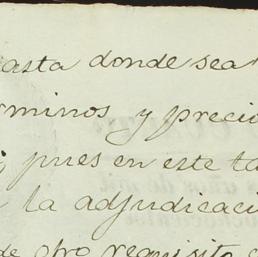 hasta donde sea
terminos y preci
pues en este ta
la adjudicaci
de otro requisito